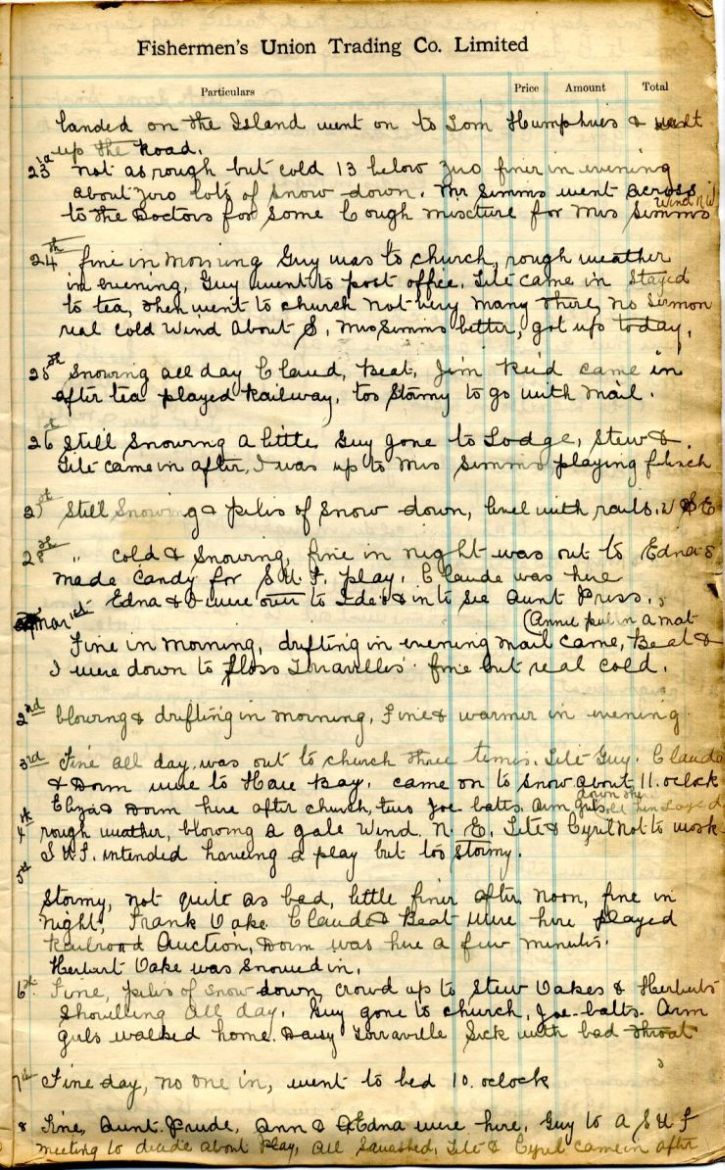 Fishermen's Union Trading Co. Limited
Particulars Price Amount Total
landed on the Island went on to Tom Humphries & went
up the Road.
23rd not as rough but cold 13 below zero finer in evening
about zero lots of snow down. Mr Simms went across
to the Doctors for some Cough mixture for Mrs Simms Wind N.W.
24th fine in morning Guy was to church, rough weather
in evening, Guy went to post office. Lile came in stayed
to tea, then went to church not very many there, no sermon
real cold Wind about S. Mrs Simms better, got up today.
25th Snowing all day Claud, Beat, Jim Reid came in
after tea played Railway, too Stormy to go with mail.
26th Still Snowing a little Guy gone to Lodge, Stew &
Lile came in after, I was up to Mrs Simms playing flinch
27th Still Snowing & piles of snow down, level with rails. W S E
28th " cold & snowing, fine in night was out to Edna's
made candy for S.U.F. play. Claude was here
Edna & I were over to Ide's & in to see Aunt Press.
(Annie put in a mat
Mar 1st
Fine in morning, drifting in evening mail came, Beat &
I were down to Floss Torravilles. fine but real cold.
2nd blowing & drifting in morning, Fine & warmer in evening
3rd Fine all day, was out to church three times. Lile Guy. Claude
& Dorm were to Hare Bay. came on to snow about 11. oclock
Eliza & Dorm here after church, two Joe batts. arm girls down
4th rough weather, blowing a gale Wind. N. E. Lile & Cyril not to work
S.U.F. intended having a play but too stormy.
5th
Stormy, not quite as bad, little finer after noon, fine in
night, Frank Oake Claude & Beat were here played
Railroad Auction, Dorm was here a few minutes.
Herbert Oake was Snowed in.
6th Fine, piles of snow down, crowd up to Stew Oakes & Herberts
Shovelling all day. Guy gone to church, Joe-batts-Arm
girls walked home. Daisy Torraville Sick with bad throat
7th Fine day, no one in, went to bed 10. oclock
8 Fine, Aunt. Prude, Ann & Edna were here, Guy to a S.U.F
meeting to decide about Play, all Squashed, Lile & Cyril came in after